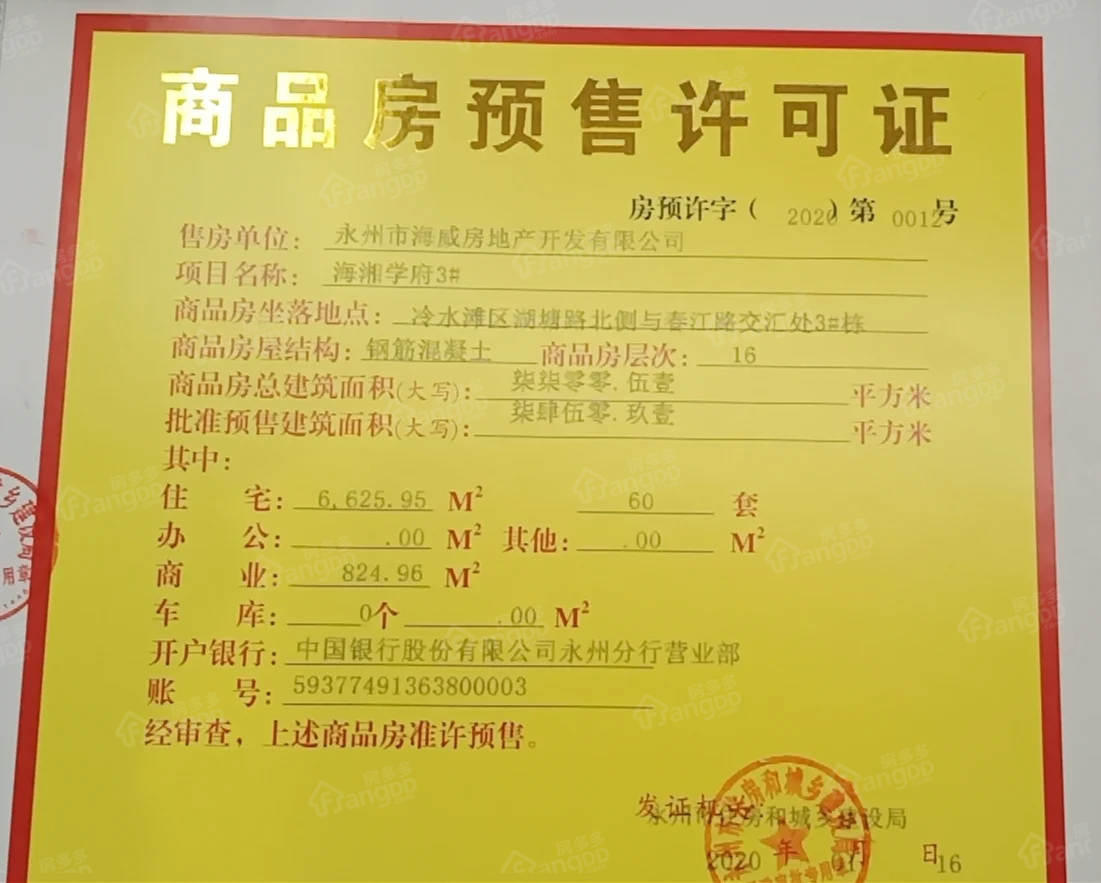 商品房预售许可证
房预许字(2020)第0012号
售房单位:永州市海威房地产开发有限公司
项目名称:海湘学府3#
商品房坐落地点:冷水滩区湖塘路北侧与春江路交汇处3#栋
商品房屋结构:钢筋混凝土 商品房层次:16
商品房总建筑面积(大写):柒柒零零.伍壹 平方米
批准预售建筑面积(大写):柒肆伍零.玖壹 平方米
其中:
住宅:6,625.95 M² 60 套
办公:.00 M² 其他:.00 M²
商业:824.96 M²
车库:0个 .00 M²
开户银行:中国银行股份有限公司永州分行营业部
账号:593774913638000​03
经审查,上述商品房准许预售。
发证机关:
永州市住房和城乡建设局
2020年07月16日